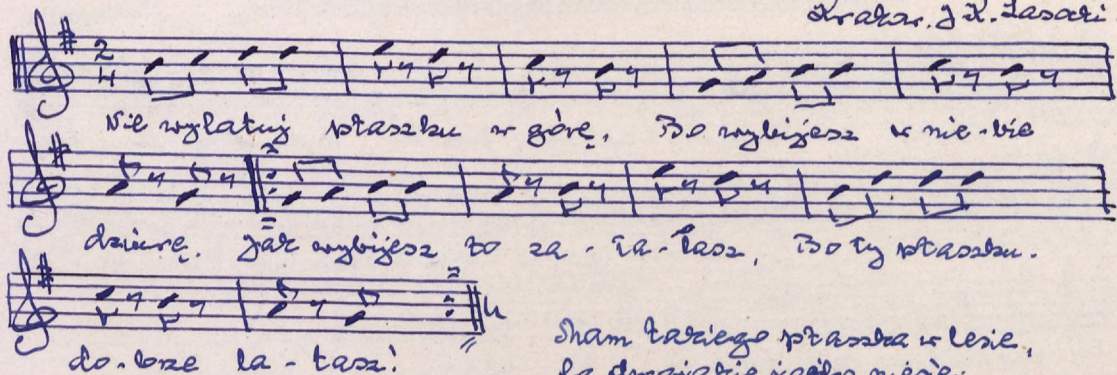 Krakow. J K. Lasocki
2
4
Nie wylatuj ptaszku w górę, Bo wybijesz w nie-bie
dziurę. Jak wybijesz to za-ła-tasz, Bo ty ptaszku.
do-brze la-tasz!
Mam takiego ptaszka w lesie,